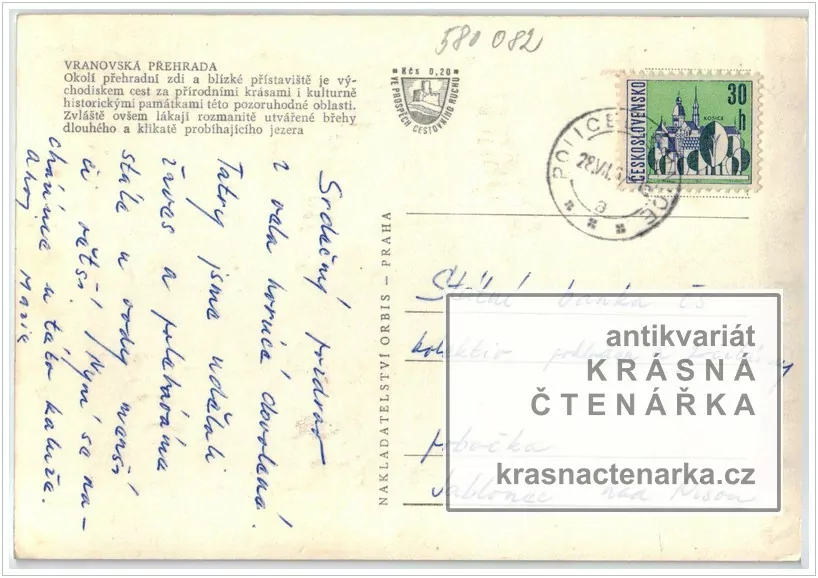 580 082
VRANOVSKÁ PŘEHRADA
Okolí přehradní zdi a blízké přístaviště je vý-
chodiskem cest za přírodními krásami i kulturně
historickými památkami této pozoruhodné oblasti.
Zvláště ovšem lákají rozmanitě utvářené břehy
dlouhého a klikatě probíhajícího jezera
Kčs 0,20
VE PROSPĚCH CESTOVNÍHO RUCHU
ČESKOSLOVENSKO
30 h
KOŠICE
POLICE
28.VII.
a
Srdečný pozdrav
z
horké dovolené.
Tatry jsme udělali
a
stále u vody menší
či větší. Nyní se na-
cházíme u této kaluže.
Ahoj Marie
NAKLADATELSTVÍ ORBIS – PRAHA
Státní banka čs
kolektiv
pobočka
Jablonec nad Nisou
antikvariát
KRÁSNÁ
ČTENÁŘKA
krasnactenarka.cz